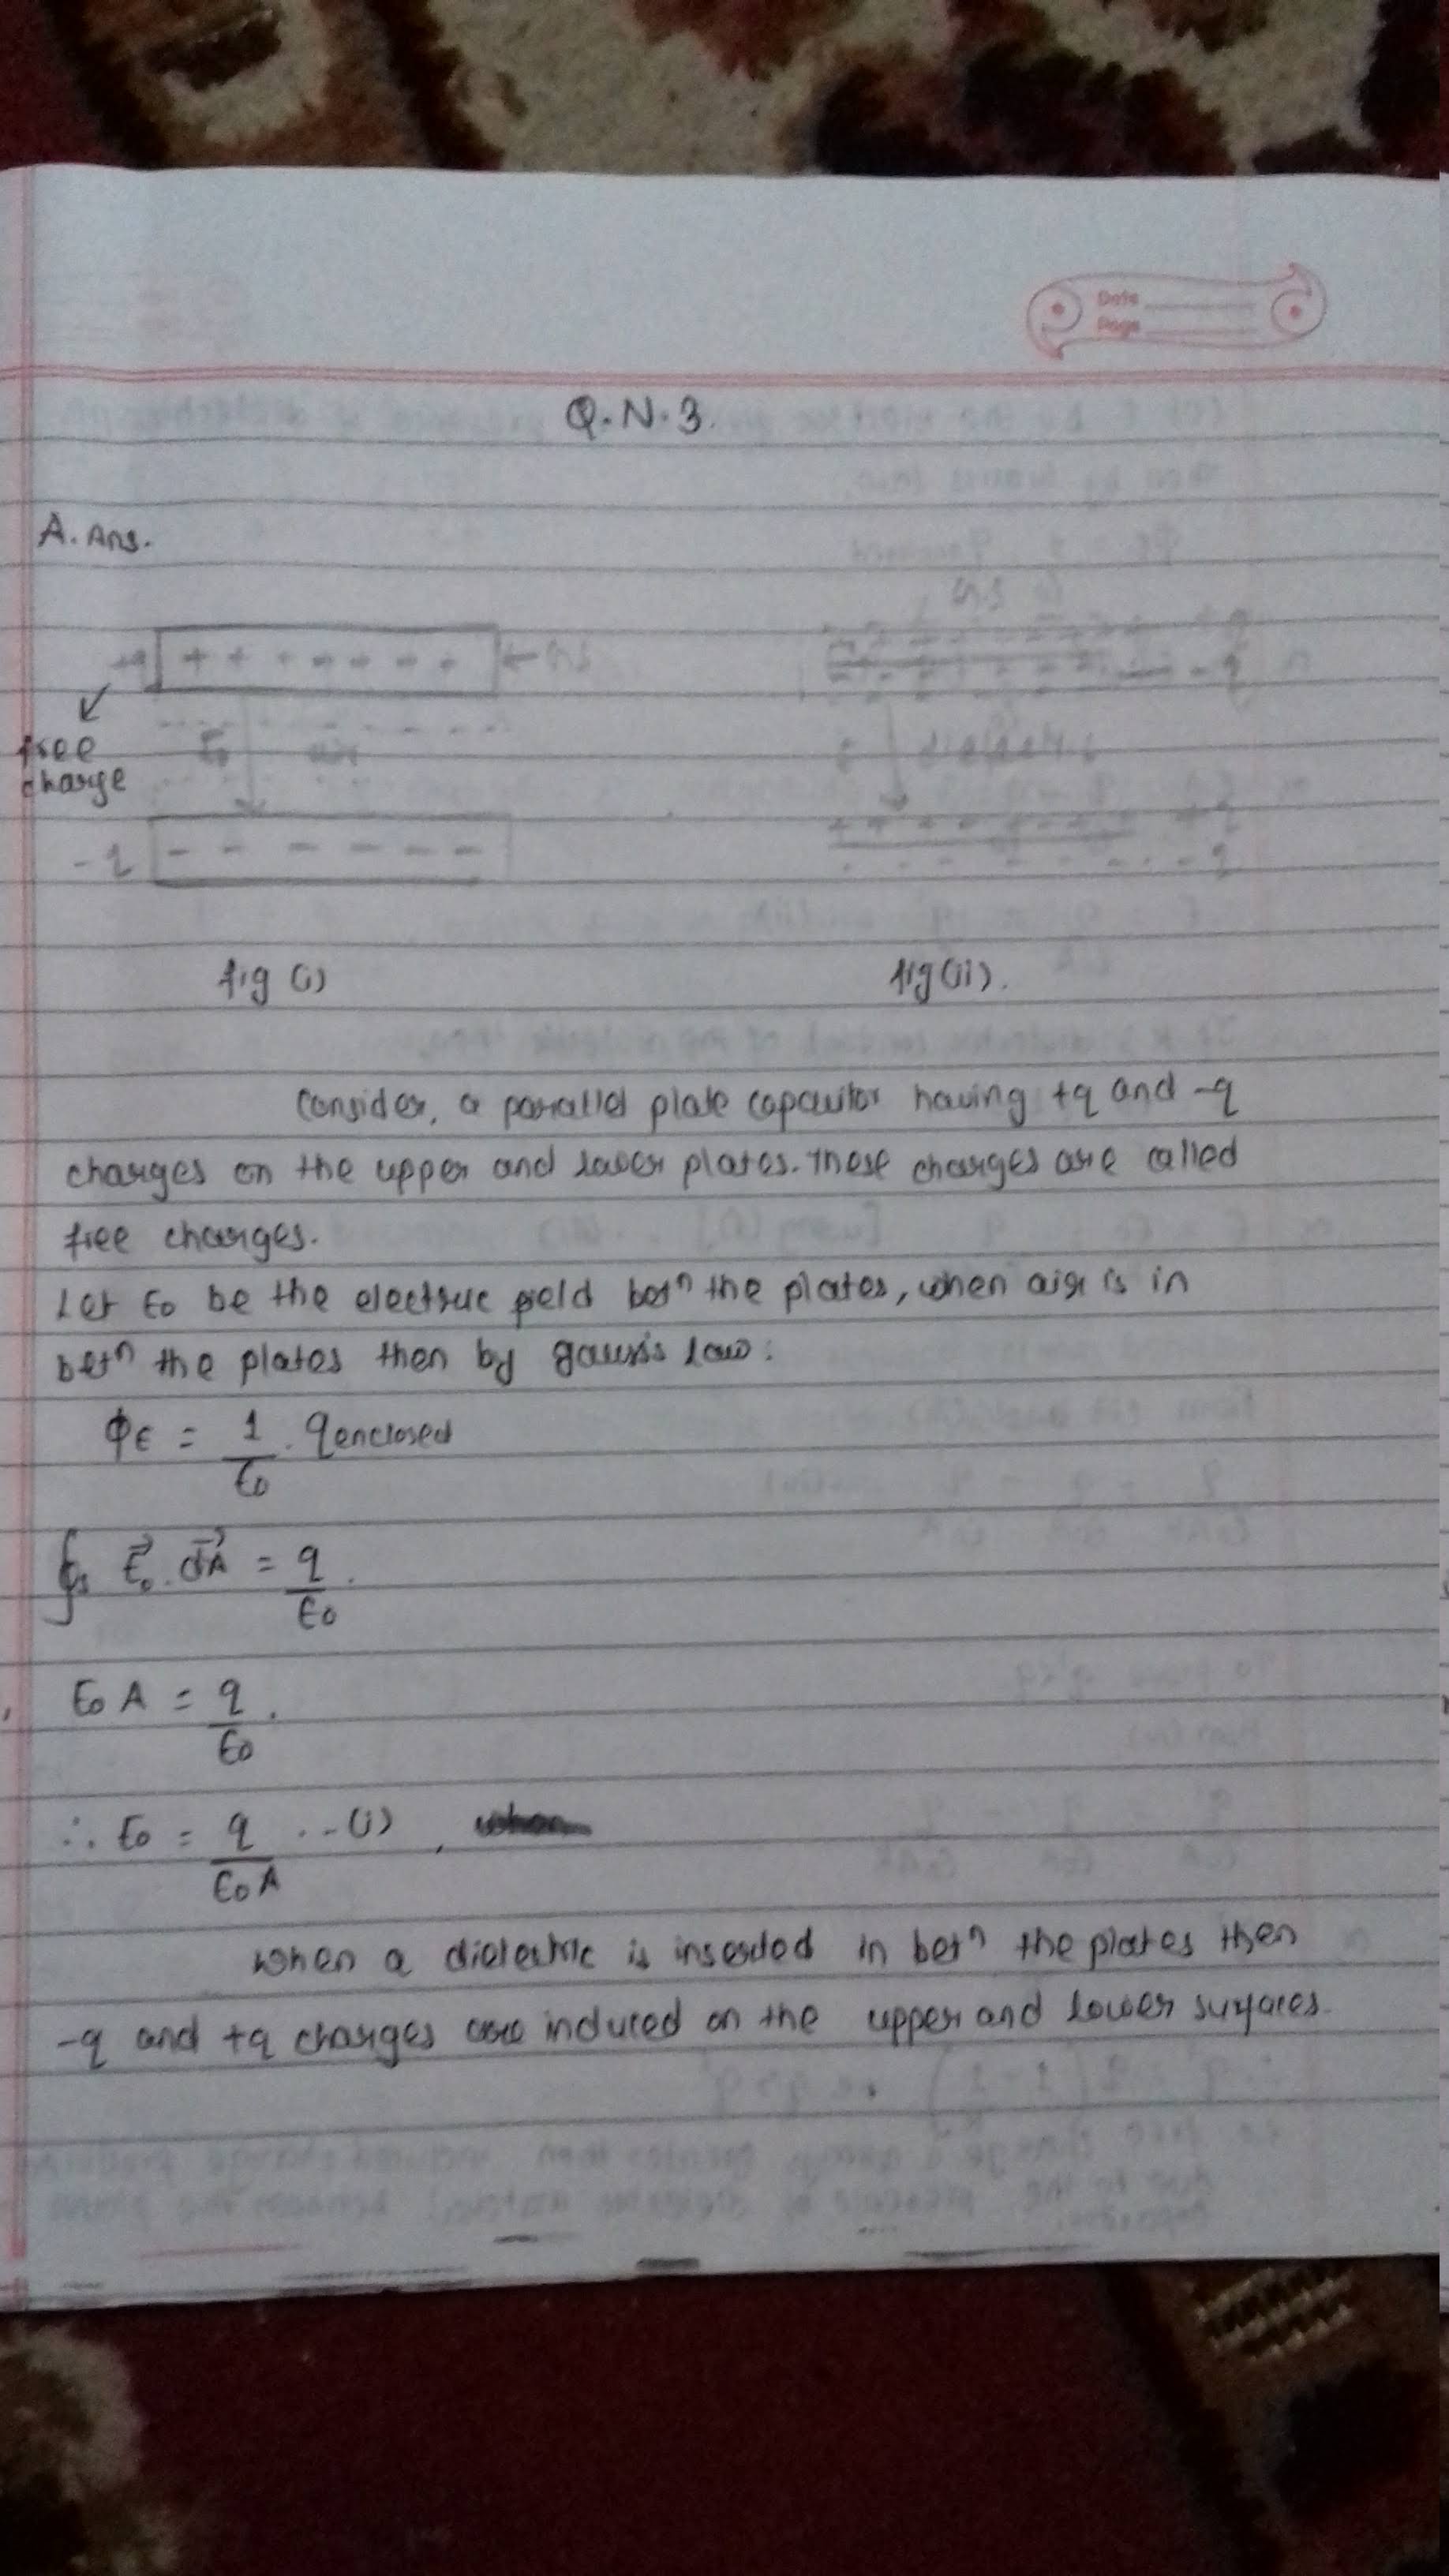 Date
Page
Q.N.3.
A. Ans.
+q + + + - + - + ← G.S
free
charge
E₀
-q - - - - - -
G.S
+q
-q
-q
fig (i) fig (ii).
Consider, a parallel plate capacitor having +q and -q
charges on the upper and lower plates. These charges are called
free charges.
Let E₀ be the electric field betⁿ the plates, when air is in
betⁿ the plates then by gauss's law:
ϕE = 1/ε₀ . qenclosed
∮s E₀⃗ . dA⃗ = q/ε₀ .
E₀ A = q/ε₀ .
∴ E₀ = q/ε₀A ...(i) ,
when a dielectric is inserted in betⁿ the plates then
-q and +q charges are induced on the upper and lower surfaces.